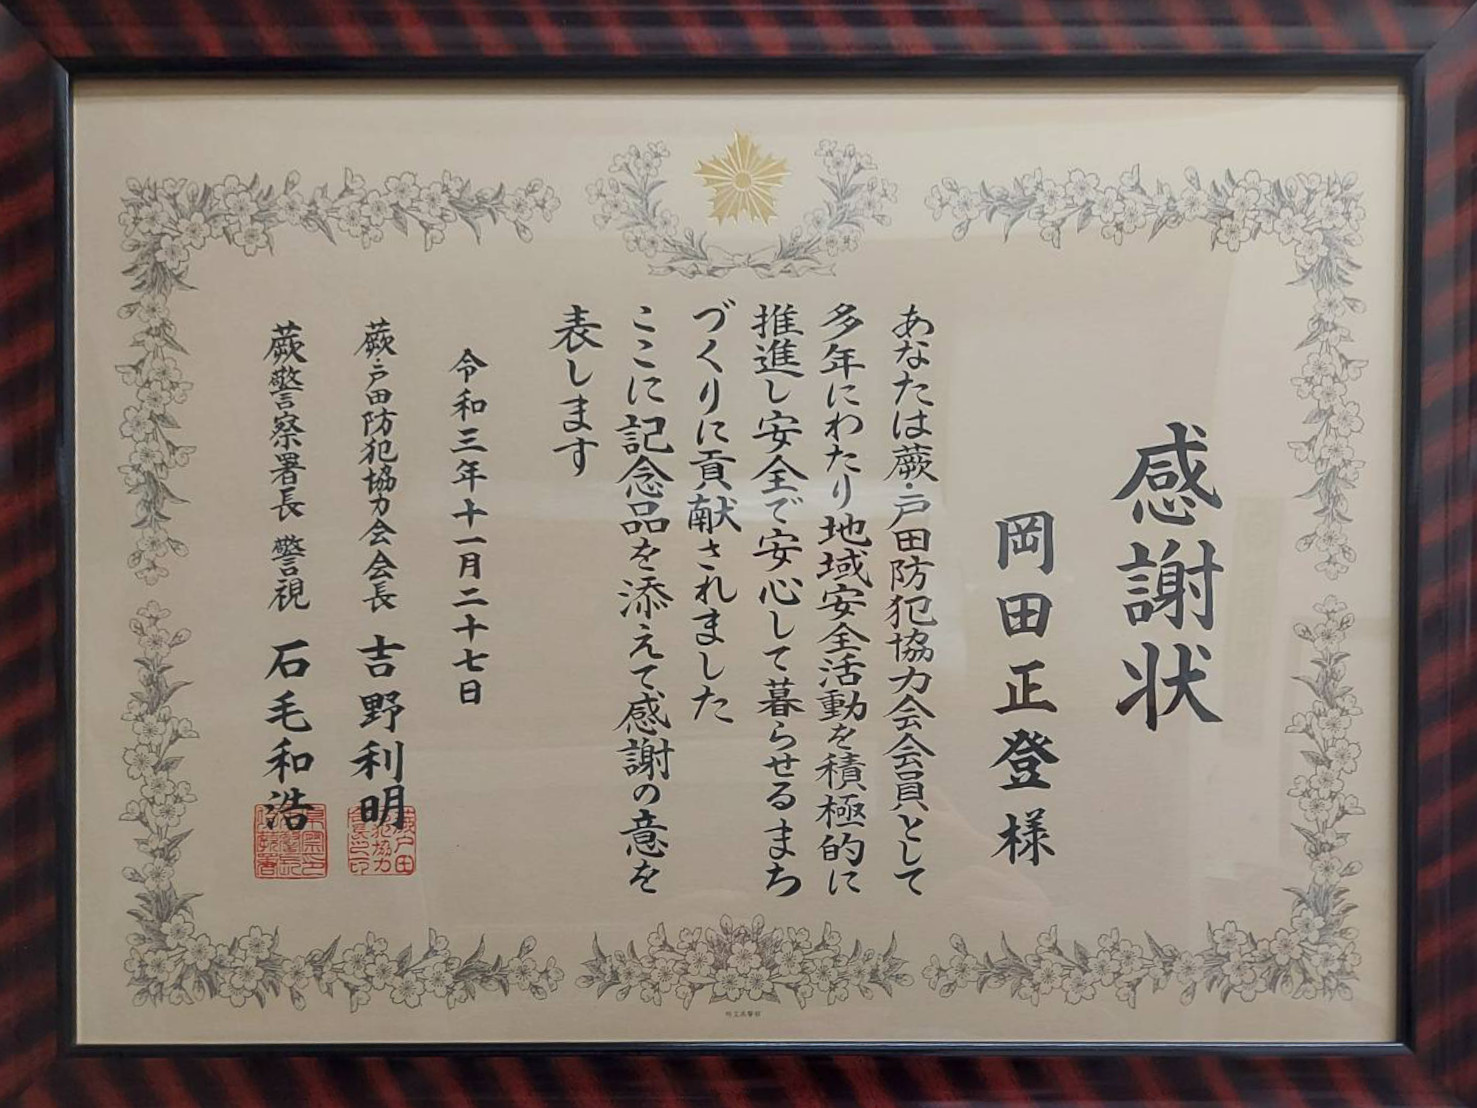 感謝状
岡田正登様
あなたは蕨・戸田防犯協力会会員として
多年にわたり地域安全活動を積極的に
推進し安全で安心して暮らせるまち
づくりに貢献されました
ここに記念品を添えて感謝の意を
表します
令和三年十一月二十七日
蕨・戸田防犯協力会会長 吉野利明
蕨警察署長 警視 石毛和浩